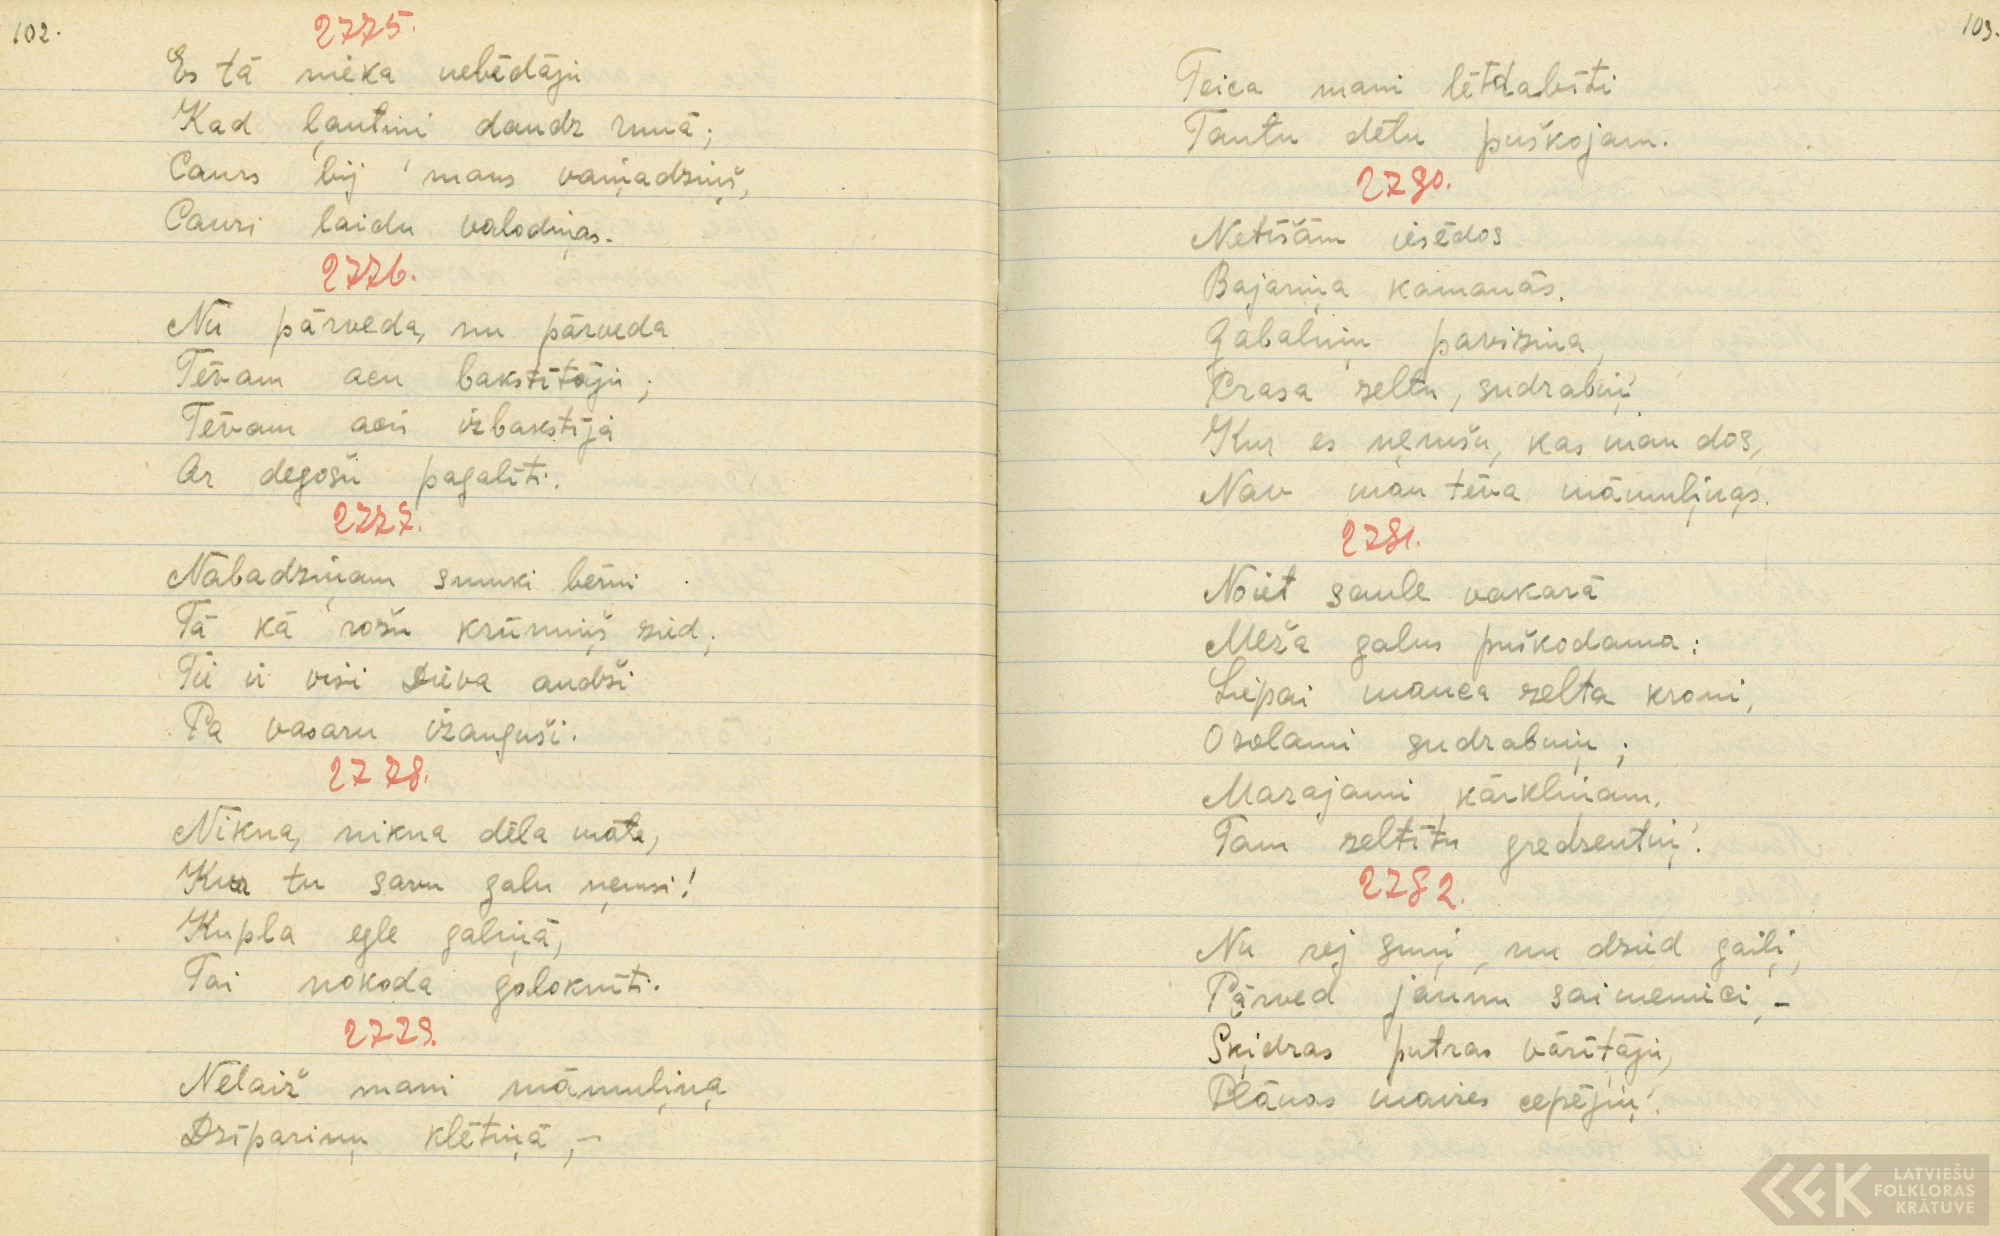 102.
2775.
Es tā nieka nebēdāju
Kad ļautiņi daudz runā;
Caurs bij mans vaiņadziņš,
Cauri laidu valodiņas.
2776.
Nu pārveda, nu pārveda
Tēvam acu bakstītāju;
Tēvam aci izbakstīja
Ar degošu pagalīti.
2777.
Nabadziņam smuki bērni
Tā kā rožu krūmiņš zied;
Tie ir visi Dieva audži
Pa vasaru izauguši.
2778.
Nikna, nikna dēla māte,
Kur tu savu galu ņemsi!
Kupla egle galiņā,
Tai nokoda galoknīti.
2779.
Nelaiž mani māmuliņa
Dzīpariņu klētiņā, –
103.
Teica mani lētdabīti
Tautu dēlu puškojam.
2780.
Netīšām iesēdos
Bajariņa kamanās.
Gabaliņu pavizina,
Prasa zeltu, sudrabiņ'
Kur es ņemšu, kas man dos,
Nav man tēva māmuliņas.
2781.
Noiet saule vakarā
Meža galus puškodama:
Liepai mauca zelta kroni,
Ozolami sudrabiņu;
Mazajami kārkliņam,
Tam zeltītu gredzentiņ'.
2782.
Nu rej suņi, nu dzied gaiļi,
Pārved jaunu saimenieci, –
Šķidras putras vārītāju,
Plānas maizes cepējiņ'.
LATVIEŠU
FOLKLORAS
KRĀTUVE